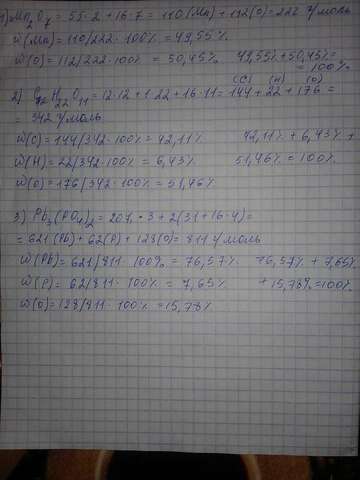 1) Mn₂O₇ = 55·2 + 16·7 = 110(Mn) + 112(O) = 222 г/моль
W(Mn) = 110/222 · 100% = 49,55%
W(O) = 112/222 · 100% = 50,45% 49,55% + 50,45% =
= 100%
(C) (H) (O)
2) C₁₂H₂₂O₁₁ = 12·12 + 1·22 + 16·11 = 144 + 22 + 176 =
= 342 г/моль
W(C) = 144/342 · 100% = 42,11% 42,11% + 6,43% +
W(H) = 22/342 · 100% = 6,43% 51,46% = 100%
W(O) = 176/342 · 100% = 51,46%
3) Pb₃(PO₄)₂ = 207 · 3 + 2(31 + 16·4) =
= 621(Pb) + 62(P) + 128(O) = 811 г/моль
W(Pb) = 621/811 · 100% = 76,57% 76,57% + 7,65%
W(P) = 62/811 · 100% = 7,65% + 15,78% = 100%
W(O) = 128/811 · 100% = 15,78%